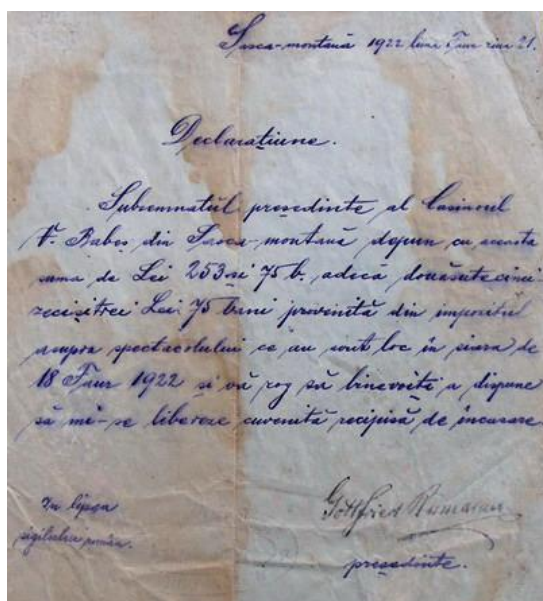 Sasca-montană 1922 luna Faur ziua 21.
Declarațiune.
Subsemnatul președinte al Casinoul
V. Babeș din Sasca-montană depun cu aceasta
suma de Lei 253 și 75 b. adecă douăsutecinci-
zecișitrei Lei 75 bani provenită din impozitul
asupra spectacolului ce au avut loc în siara de
18 Faur 1922 și vă rog să binevoiți a dispune
să mi-se libereze cuvenită recipisă de incasare.
In lipsa
sigilului
Gottfried
președinte.